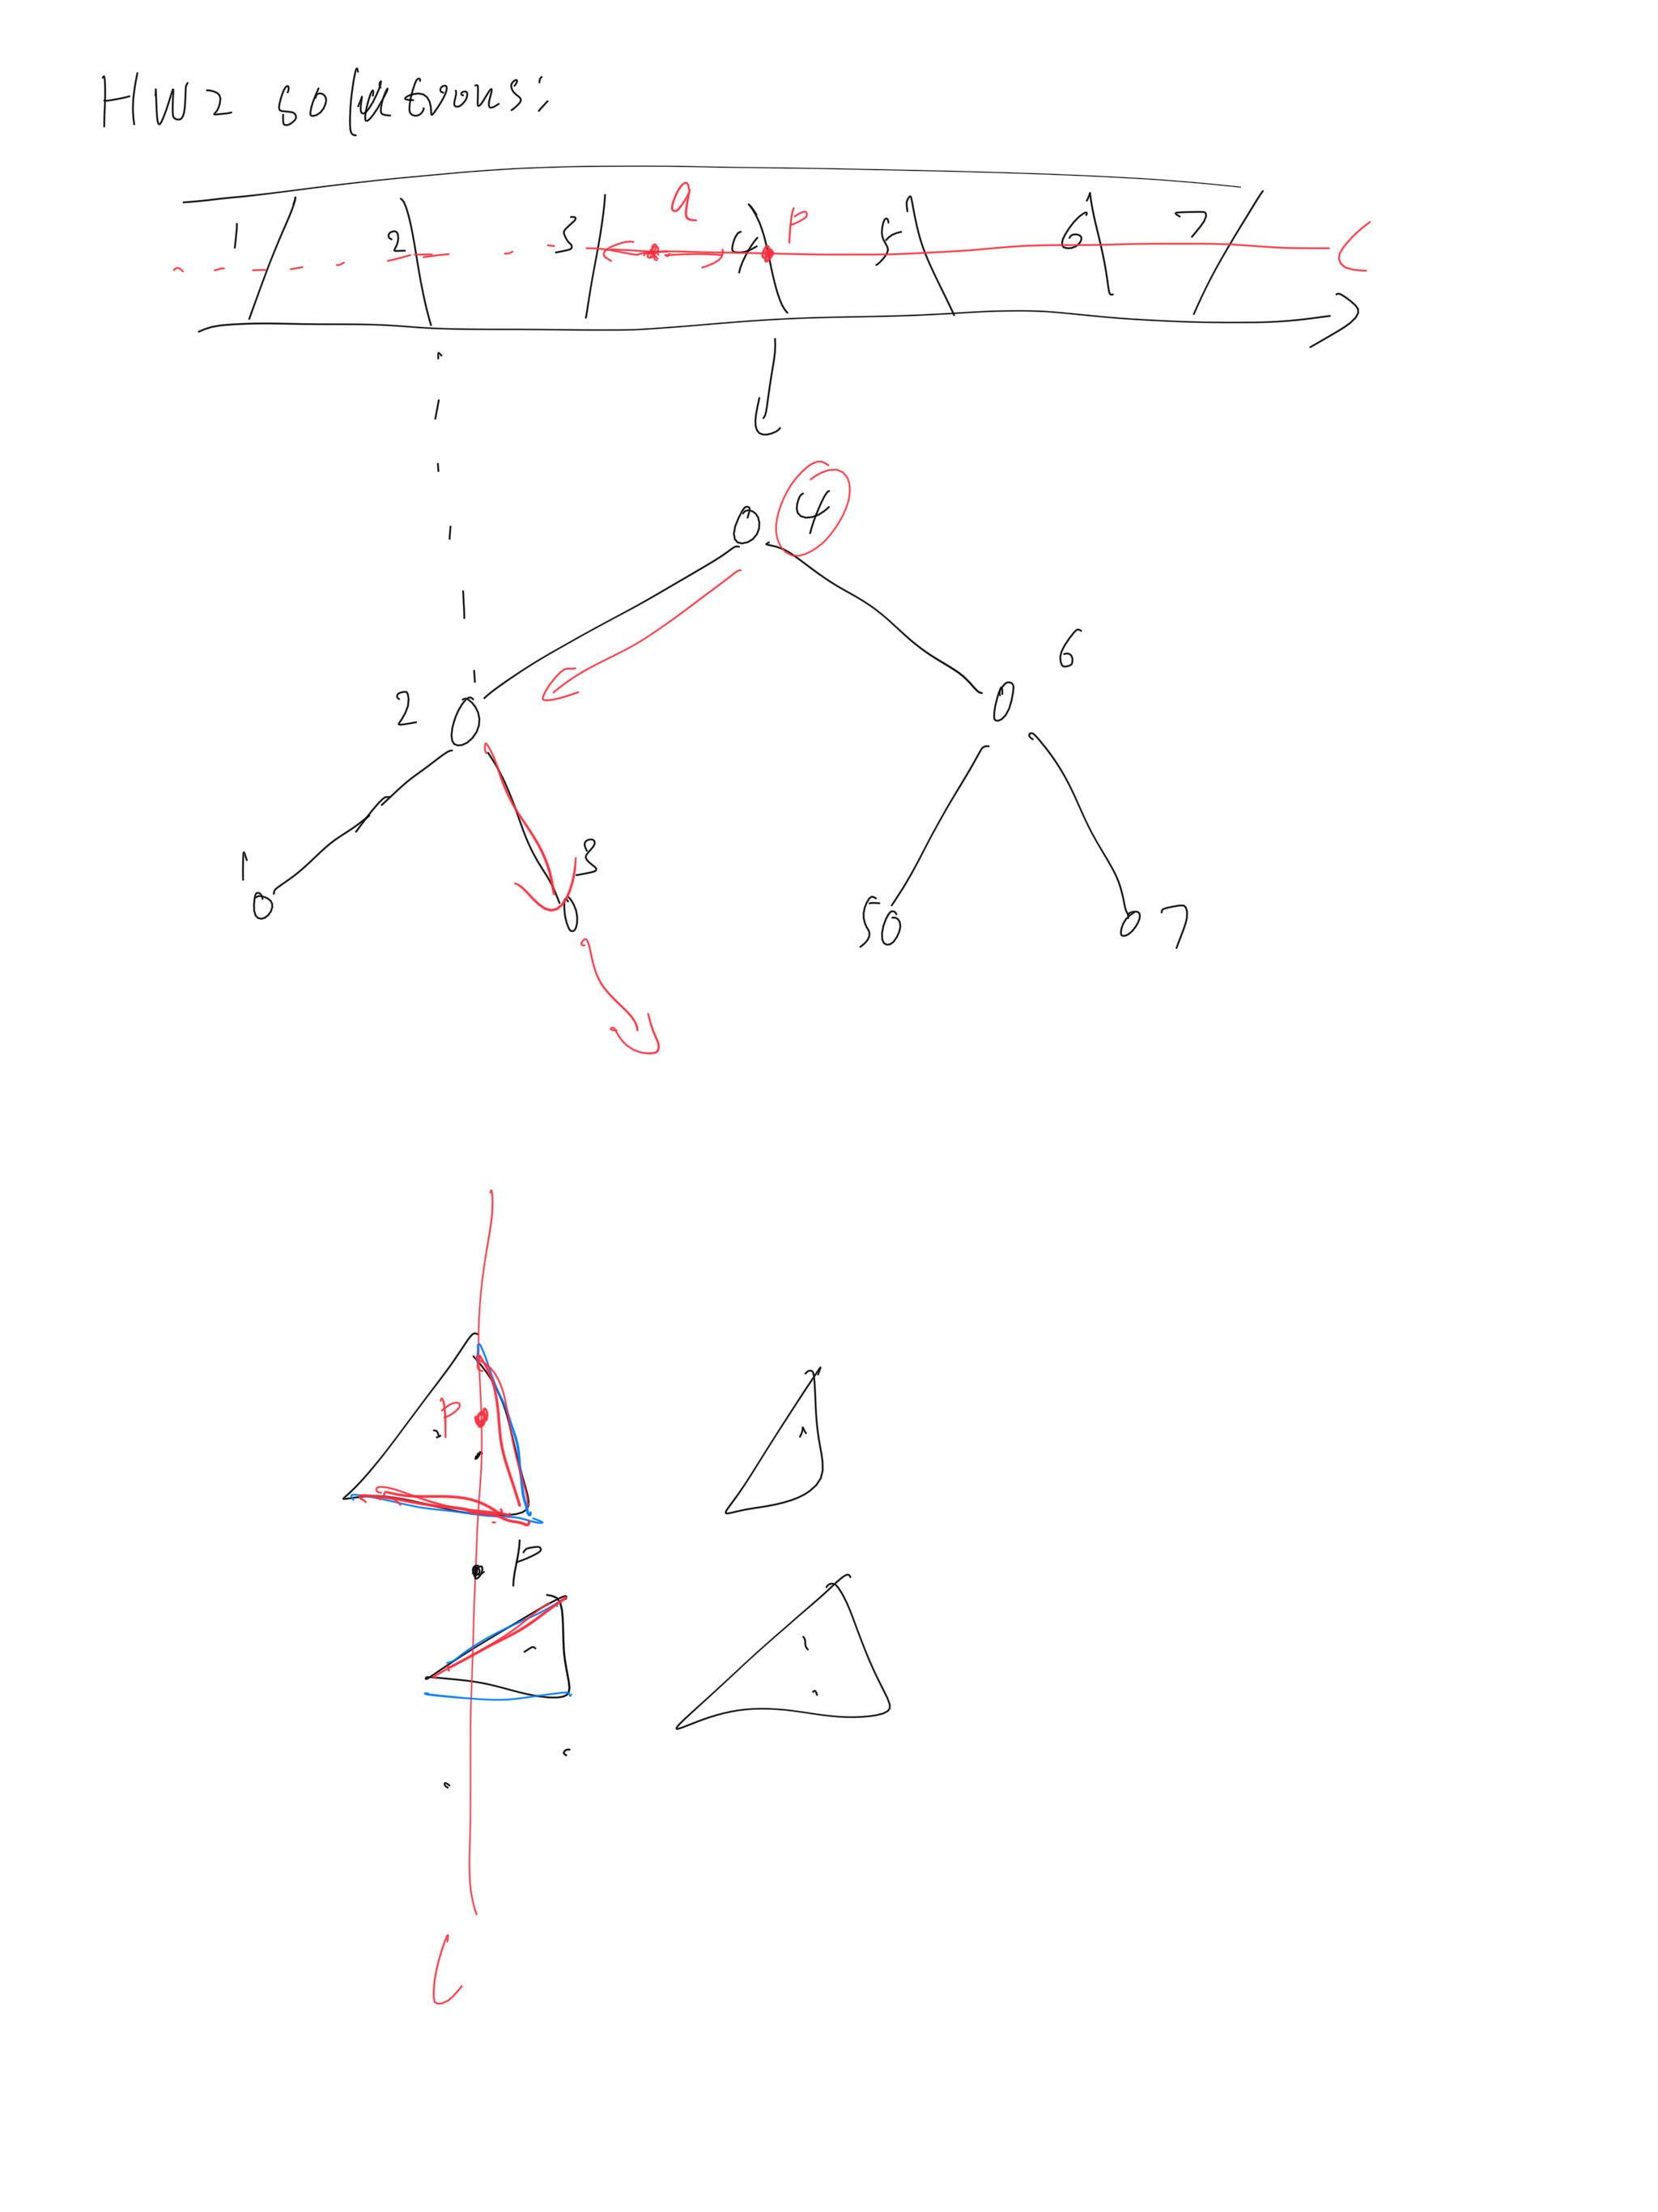 HW2 solutions:
1 2 3 q 4 p 5 6 7 l
l
4
2 6
1 3 5 7
p
p
l